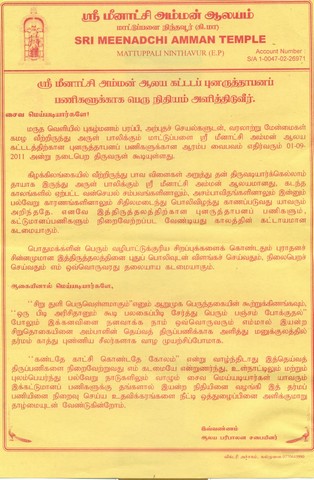 ஸ்ரீ மீனாட்சி அம்மன் ஆலயம்
மாட்டுப்பளை நிந்தவூர் (கி.மா)
SRI MEENADCHI AMMAN TEMPLE
MATTUPPALI NINTHAVUR (E.P)
Account Number
S/A 1-0047-02-26571
ஸ்ரீ மீனாட்சி அம்மன் ஆலய கட்டடப் புனருத்தாபனப்
பணிகளுக்காக பெரு நிதியம் அளித்திடுவீர்.
சைவ மெய்யடியார்களே!
மருத வெளியில் புகழ்மணம் பரப்பி, அற்புதச் செயல்களுடன், வரலாற்று மேன்மைகள்
கமழ வீற்றிருந்து அருள் பாலிக்கும் மாட்டுப்பளை ஸ்ரீ மீனாட்சி அம்மன் ஆலய
கட்டடத்திற்கான புனருத்தாபனப் பணிகளுக்கான ஆரம்ப வைபவம் எதிர்வரும் 01-09-
2011 அன்று நடைபெற திருவருள் கூடியுள்ளது.
கிழக்கிலங்கையில் வீற்றிருந்து பாவ வினைகள் அறுத்து தன் திருவடியார்க்கெல்லாம்
தாயாக இருந்து அருள் பாலிக்கும் ஸ்ரீ மீனாட்சி அம்மன் ஆலயமானது, கடந்த
காலங்களில் ஏற்பட்ட வன்செயல் சம்பவங்களினாலும், ஆகாயப்
பல்வேறு காரணங்களினாலும் சிதிலமடைந்து பொலிவிழந்து காணப்படுவது யாவரும்
அறிந்ததே. எனவே இத்திருத்தலத்திற்கான புனருத்தாபனப் பணிகளும்,
கட்டுமானப்பணிகளும் நிறைவேற்றப்பட வேண்டியது காலத்தின் கட்டாயமான
கடமையாகும்.
பொதுமக்களின் பெரும் வழிபாட்டுக்குரிய சிறப்புக்களைக் கொண்டதும் புராதனச்
சின்னமுமான இத்திருத்தலத்தினை புதுப் பொலிவுடன் விளங்கச் செய்வதும், நிலைபெறச்
செய்வதும் எம் ஒவ்வொருவரது தலையாய கடமையாகும்.
ஆகையினால் மெய்யடியார்களே,
"சிறு துளி பெருவெள்ளமாகும்"எனும் ஆறுமுக பெருத்தகையின் கூற்றுக்கிணங்கவும்,
"ஒரு பிடி அரிசிதானும் கூடி பலகைப்பிடி சேர்த்து பெரும் பஞ்சம் போக்குதல்"
போலும் இக்கைங்கரியம் நனவாக்க நாம் ஒவ்வொருவரும் எம்மால் இயன்ற
சிறுதொகையினை அம்பாளின் தெய்வத் திருப்பணிக்காக அளித்து மனுக்குலத்தில்
தர்மம் காத்து புண்ணிய சீலர்களாக வாழ முயற்சிப்போமாக.
"கண்டதே காட்சி கொண்டதே கோலம்" என்று வாழ்ந்திடாது இத்தெய்வத்
திருப்பணிகளை நிறைவேற்றுவது எம் கடமையே என்றுணர்ந்து, உள்நாட்டிலும் மற்றும்
புலம்பெயர்ந்து பல்வேறு நாடுகளிலும் வாழும் சைவ மெய்யடியார்கள் யாவரும்
இக்கட்டுமானப் பணிகளுக்கு தங்களால் இயன்ற நிதியினை வழங்கி இத் தர்மப்
பணியினை நிறைவு செய்ய உதவிக்கரங்களை நீட்டி ஒத்துழைப்பினை அளிக்குமாறு
தாழ்மையுடன் வேண்டுகின்றோம்.
இவ்வண்ணம்
ஆலய பரிபாலன சபையினர்